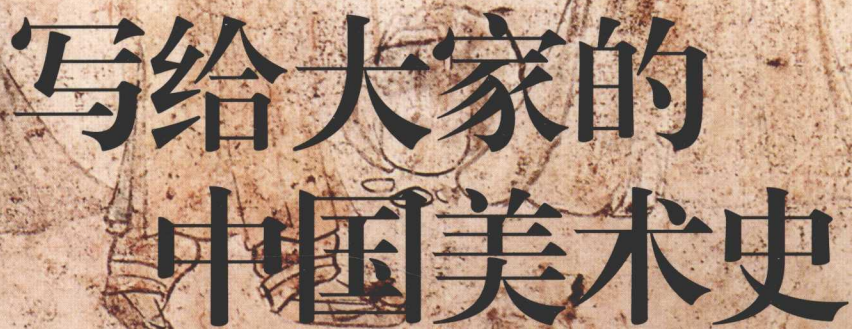 写给大家的
中国美术史